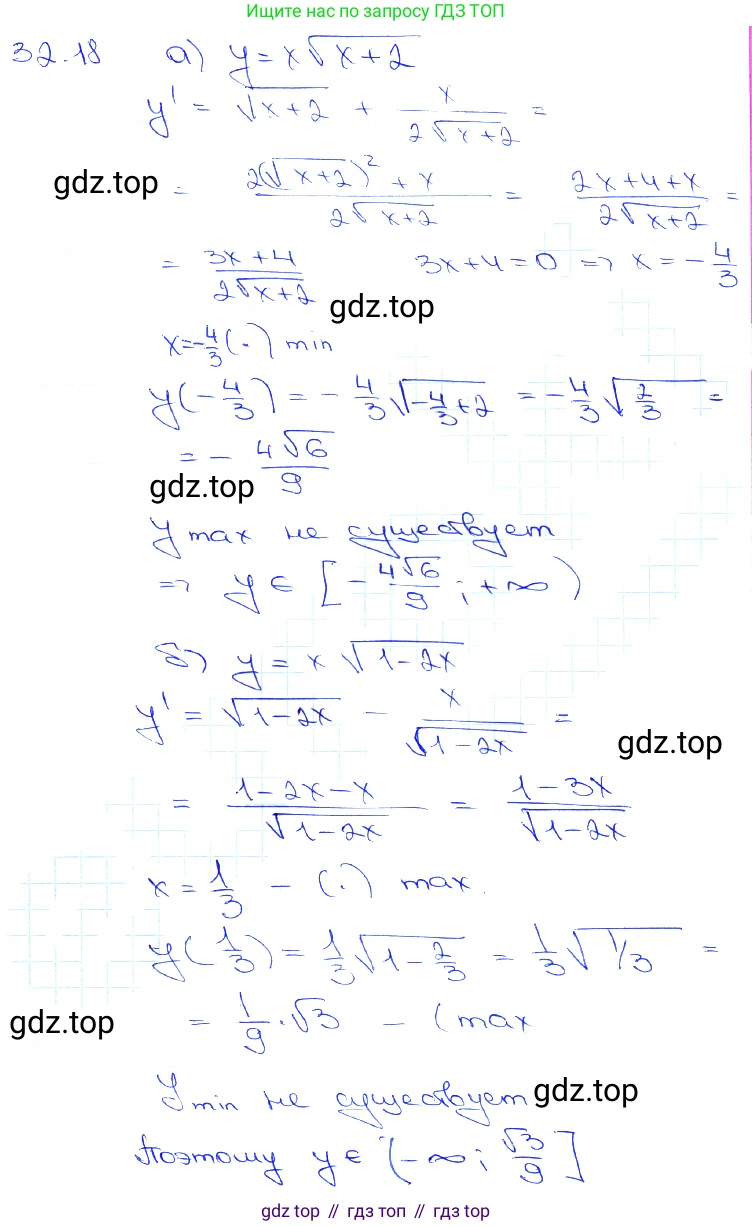 Ищите нас по запросу ГДЗ ТОП
32.18 а) y = x√(x+2)
y' = √(x+2) + x/(2√(x+2)) =
gdz.top
= (2(√(x+2))² + x)/(2√(x+2)) = (2x+4+x)/(2√(x+2)) =
= (3x+4)/(2√(x+2)) 3x+4=0 => x = -4/3
gdz.top
x=-4/3 (·) min
y(-4/3) = -4/3√(-4/3+2) = -4/3√(2/3) =
= - 4√6/9
gdz.top
y max не существует
=> y ∈ [-4√6/9; +∞)
б) y = x√(1-2x)
y' = √(1-2x) - x/√(1-2x) =
gdz.top
= (1-2x-x)/√(1-2x) = (1-3x)/√(1-2x)
x = 1/3 - (·) max.
y(1/3) = 1/3√(1-2/3) = 1/3√(1/3) =
gdz.top
= 1/9·√3 - (max
y min не существует
gdz.top
Поэтому y ∈ (-∞; √3/9]
gdz.top // гдз топ // gdz.top // гдз топ